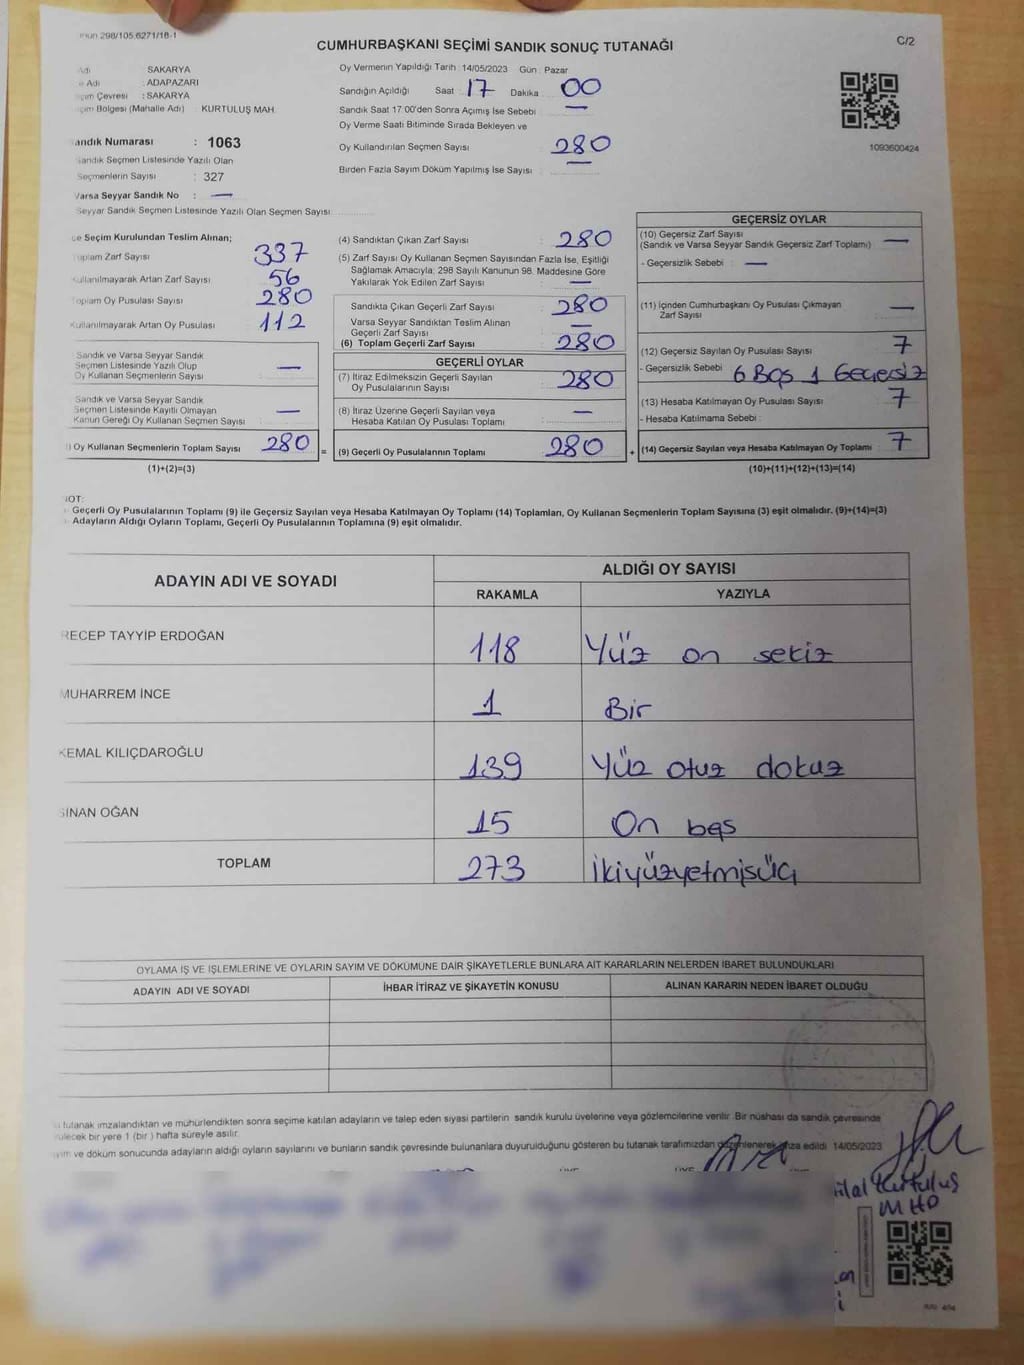 298/105,6271/18-1
C/2
CUMHURBAŞKANI SEÇİMİ SANDIK SONUÇ TUTANAĞI
Adı SAKARYA
Adı : ADAPAZARI
Çevresi : SAKARYA
Bölgesi (Mahalle Adı) KURTULUŞ MAH.
Sandık Numarası : 1063
Sandık Seçmen Listesinde Yazılı Olan
Seçmenlerin Sayısı : 327
Varsa Seyyar Sandık No : —
Seyyar Sandık Seçmen Listesinde Yazılı Olan Seçmen Sayısı
Oy Vermenin Yapıldığı Tarih : 14/05/2023 Gün : Pazar
Sandığın Açıldığı Saat : 17 Dakika : 00
Sandık Saat 17:00'den Sonra Açımış İse Sebebi : —
Oy Verme Saati Bitiminde Sırada Bekleyen ve
Oy Kullandırılan Seçmen Sayısı : 280
Birden Fazla Sayım Döküm Yapılmış İse Sayısı : —
1093600424
Seçim Kurulundan Teslim Alınan;
Toplam Zarf Sayısı 337
Kullanılmayarak Artan Zarf Sayısı 56
Toplam Oy Pusulası Sayısı 280
Kullanılmayarak Artan Oy Pusulası 112
Sandık ve Varsa Seyyar Sandık
Seçmen Listesinde Yazılı Olup
Oy Kullanan Seçmenlerin Sayısı —
Sandık ve Varsa Seyyar Sandık
Seçmen Listesinde Kayıtlı Olmayan
Kanun Gereği Oy Kullanan Seçmen Sayısı —
Oy Kullanan Seçmenlerin Toplam Sayısı 280
(1)+(2)=(3)
(4) Sandıktan Çıkan Zarf Sayısı : 280
(5) Zarf Sayısı Oy Kullanan Seçmen Sayısından Fazla İse, Eşitliği
Sağlamak Amacıyla; 298 Sayılı Kanunun 98. Maddesine Göre
Yakılarak Yok Edilen Zarf Sayısı : —
Sandıkta Çıkan Geçerli Zarf Sayısı : 280
Varsa Seyyar Sandıktan Teslim Alınan
Geçerli Zarf Sayısı —
(6) Toplam Geçerli Zarf Sayısı : 280
GEÇERLİ OYLAR
(7) İtiraz Edilmeksizin Geçerli Sayılan
Oy Pusulalarının Sayısı : 280
(8) İtiraz Üzerine Geçerli Sayılan veya
Hesaba Katılan Oy Pusulası Toplamı : —
= (9) Geçerli Oy Pusulalarının Toplamı 280 +
GEÇERSİZ OYLAR
(10) Geçersiz Zarf Sayısı
(Sandık ve Varsa Seyyar Sandık Geçersiz Zarf Toplamı) —
- Geçersizlik Sebebi : —
(11) İçinden Cumhurbaşkanı Oy Pusulası Çıkmayan
Zarf Sayısı —
(12) Geçersiz Sayılan Oy Pusulası Sayısı 7
- Geçersizlik Sebebi 6 Boş 1 Geçersiz
(13) Hesaba Katılmayan Oy Pusulası Sayısı 7
- Hesaba Katılmama Sebebi :
(14) Geçersiz Sayılan veya Hesaba Katılmayan Oy Toplamı 7
(10)+(11)+(12)+(13)=(14)
NOT:
Geçerli Oy Pusulalarının Toplamı (9) ile Geçersiz Sayılan veya Hesaba Katılmayan Oy Toplamı (14) Toplamları, Oy Kullanan Seçmenlerin Toplam Sayısına (3) eşit olmalıdır. (9)+(14)=(3)
Adayların Aldığı Oyların Toplamı, Geçerli Oy Pusulalarının Toplamına (9) eşit olmalıdır.
ADAYIN ADI VE SOYADI
ALDIĞI OY SAYISI
RAKAMLA YAZIYLA
RECEP TAYYİP ERDOĞAN 118 Yüz on sekiz
MUHARREM İNCE 1 Bir
KEMAL KILIÇDAROĞLU 139 Yüz otuz dokuz
SİNAN OĞAN 15 On beş
TOPLAM 273 İkiyüzyetmişüç
OYLAMA İŞ VE İŞLEMLERİNE VE OYLARIN SAYIM VE DÖKÜMÜNE DAİR ŞİKAYETLERLE BUNLARA AİT KARARLARIN NELERDEN İBARET BULUNDUKLARI
ADAYIN ADI VE SOYADI İHBAR İTİRAZ VE ŞİKAYETİN KONUSU ALINAN KARARIN NEDEN İBARET OLDUĞU
tutanak imzalandıktan ve mühürlendikten sonra seçime katılan adayların ve talep eden siyasi partilerin sandık kurulu üyelerine veya gözlemcilerine verilir. Bir nüshası da sandık çevresinde
bir yere 1 (bir) hafta süreyle asılır.
ve döküm sonucunda adayların aldığı oyların sayılarını ve bunların sandık çevresinde bulunanlara duyurulduğunu gösteren bu tutanak tarafımızdan düzenlenerek imza edildi 14/05/2023
Kurtuluş
MHP